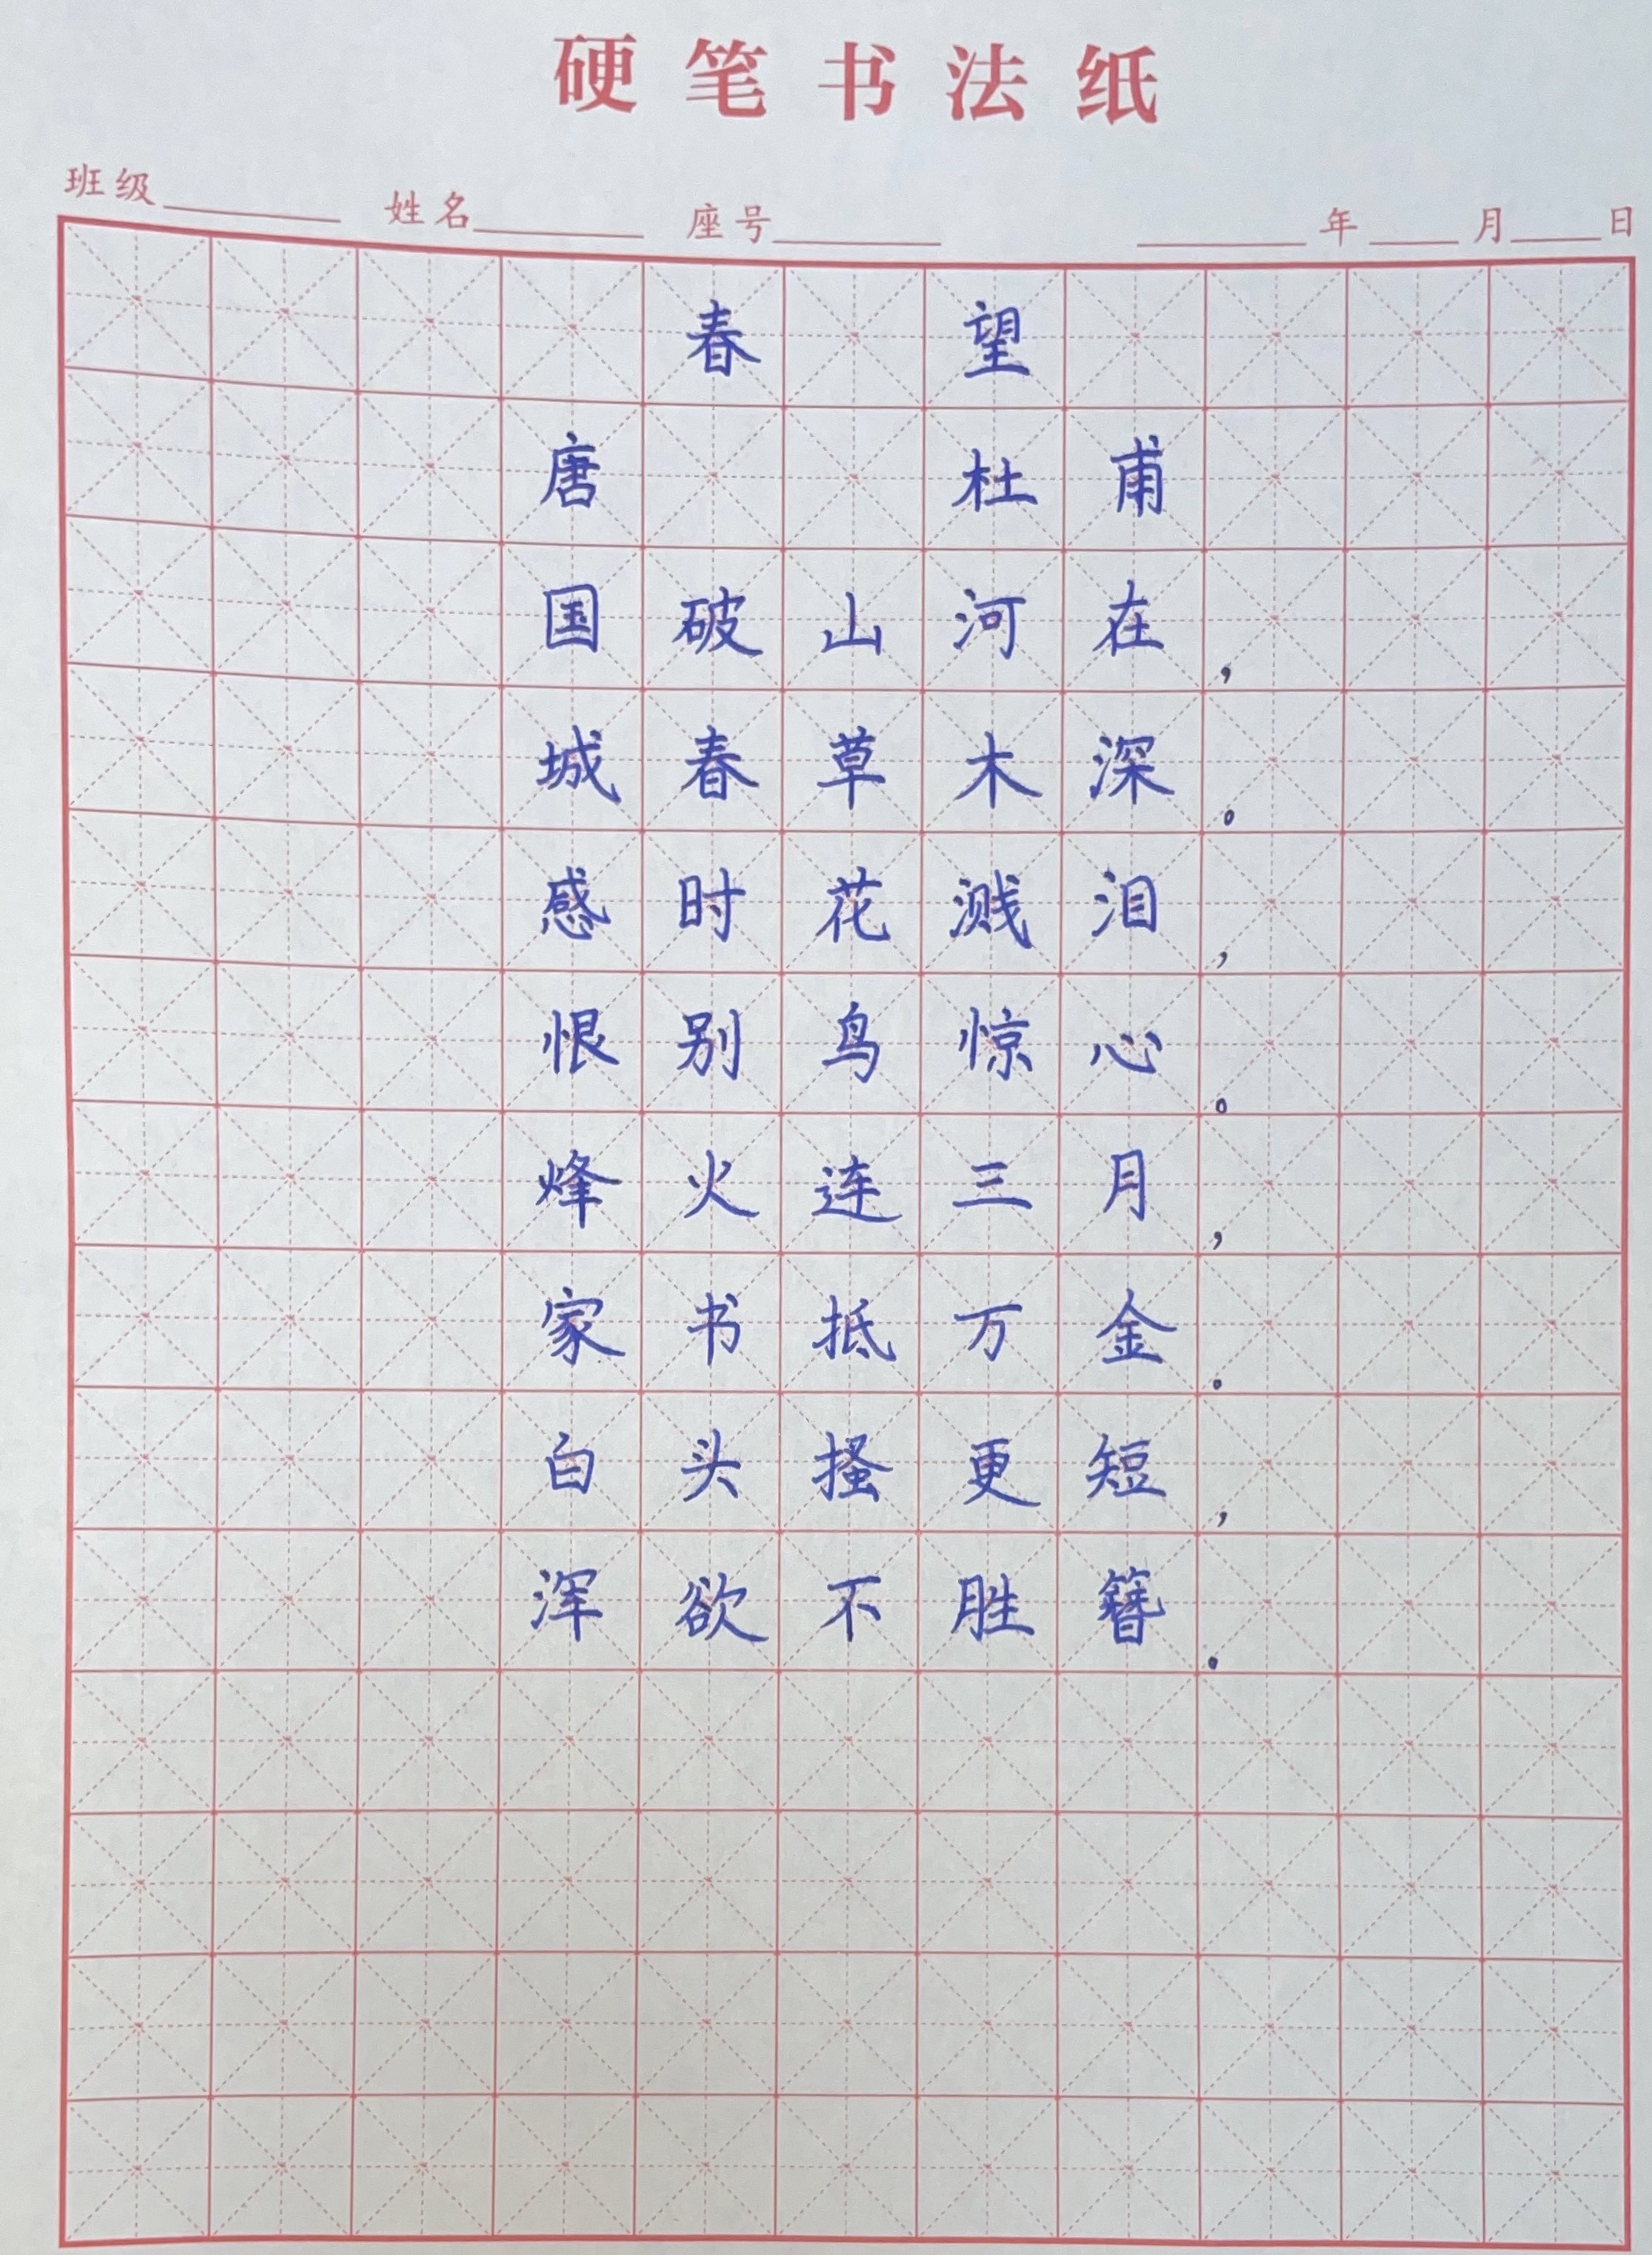 硬笔书法纸
班级 姓名 座号 年 月 日
春 望
唐 杜甫
国破山河在，
城春草木深。
感时花溅泪，
恨别鸟惊心。
烽火连三月，
家书抵万金。
白头搔更短，
浑欲不胜簪。